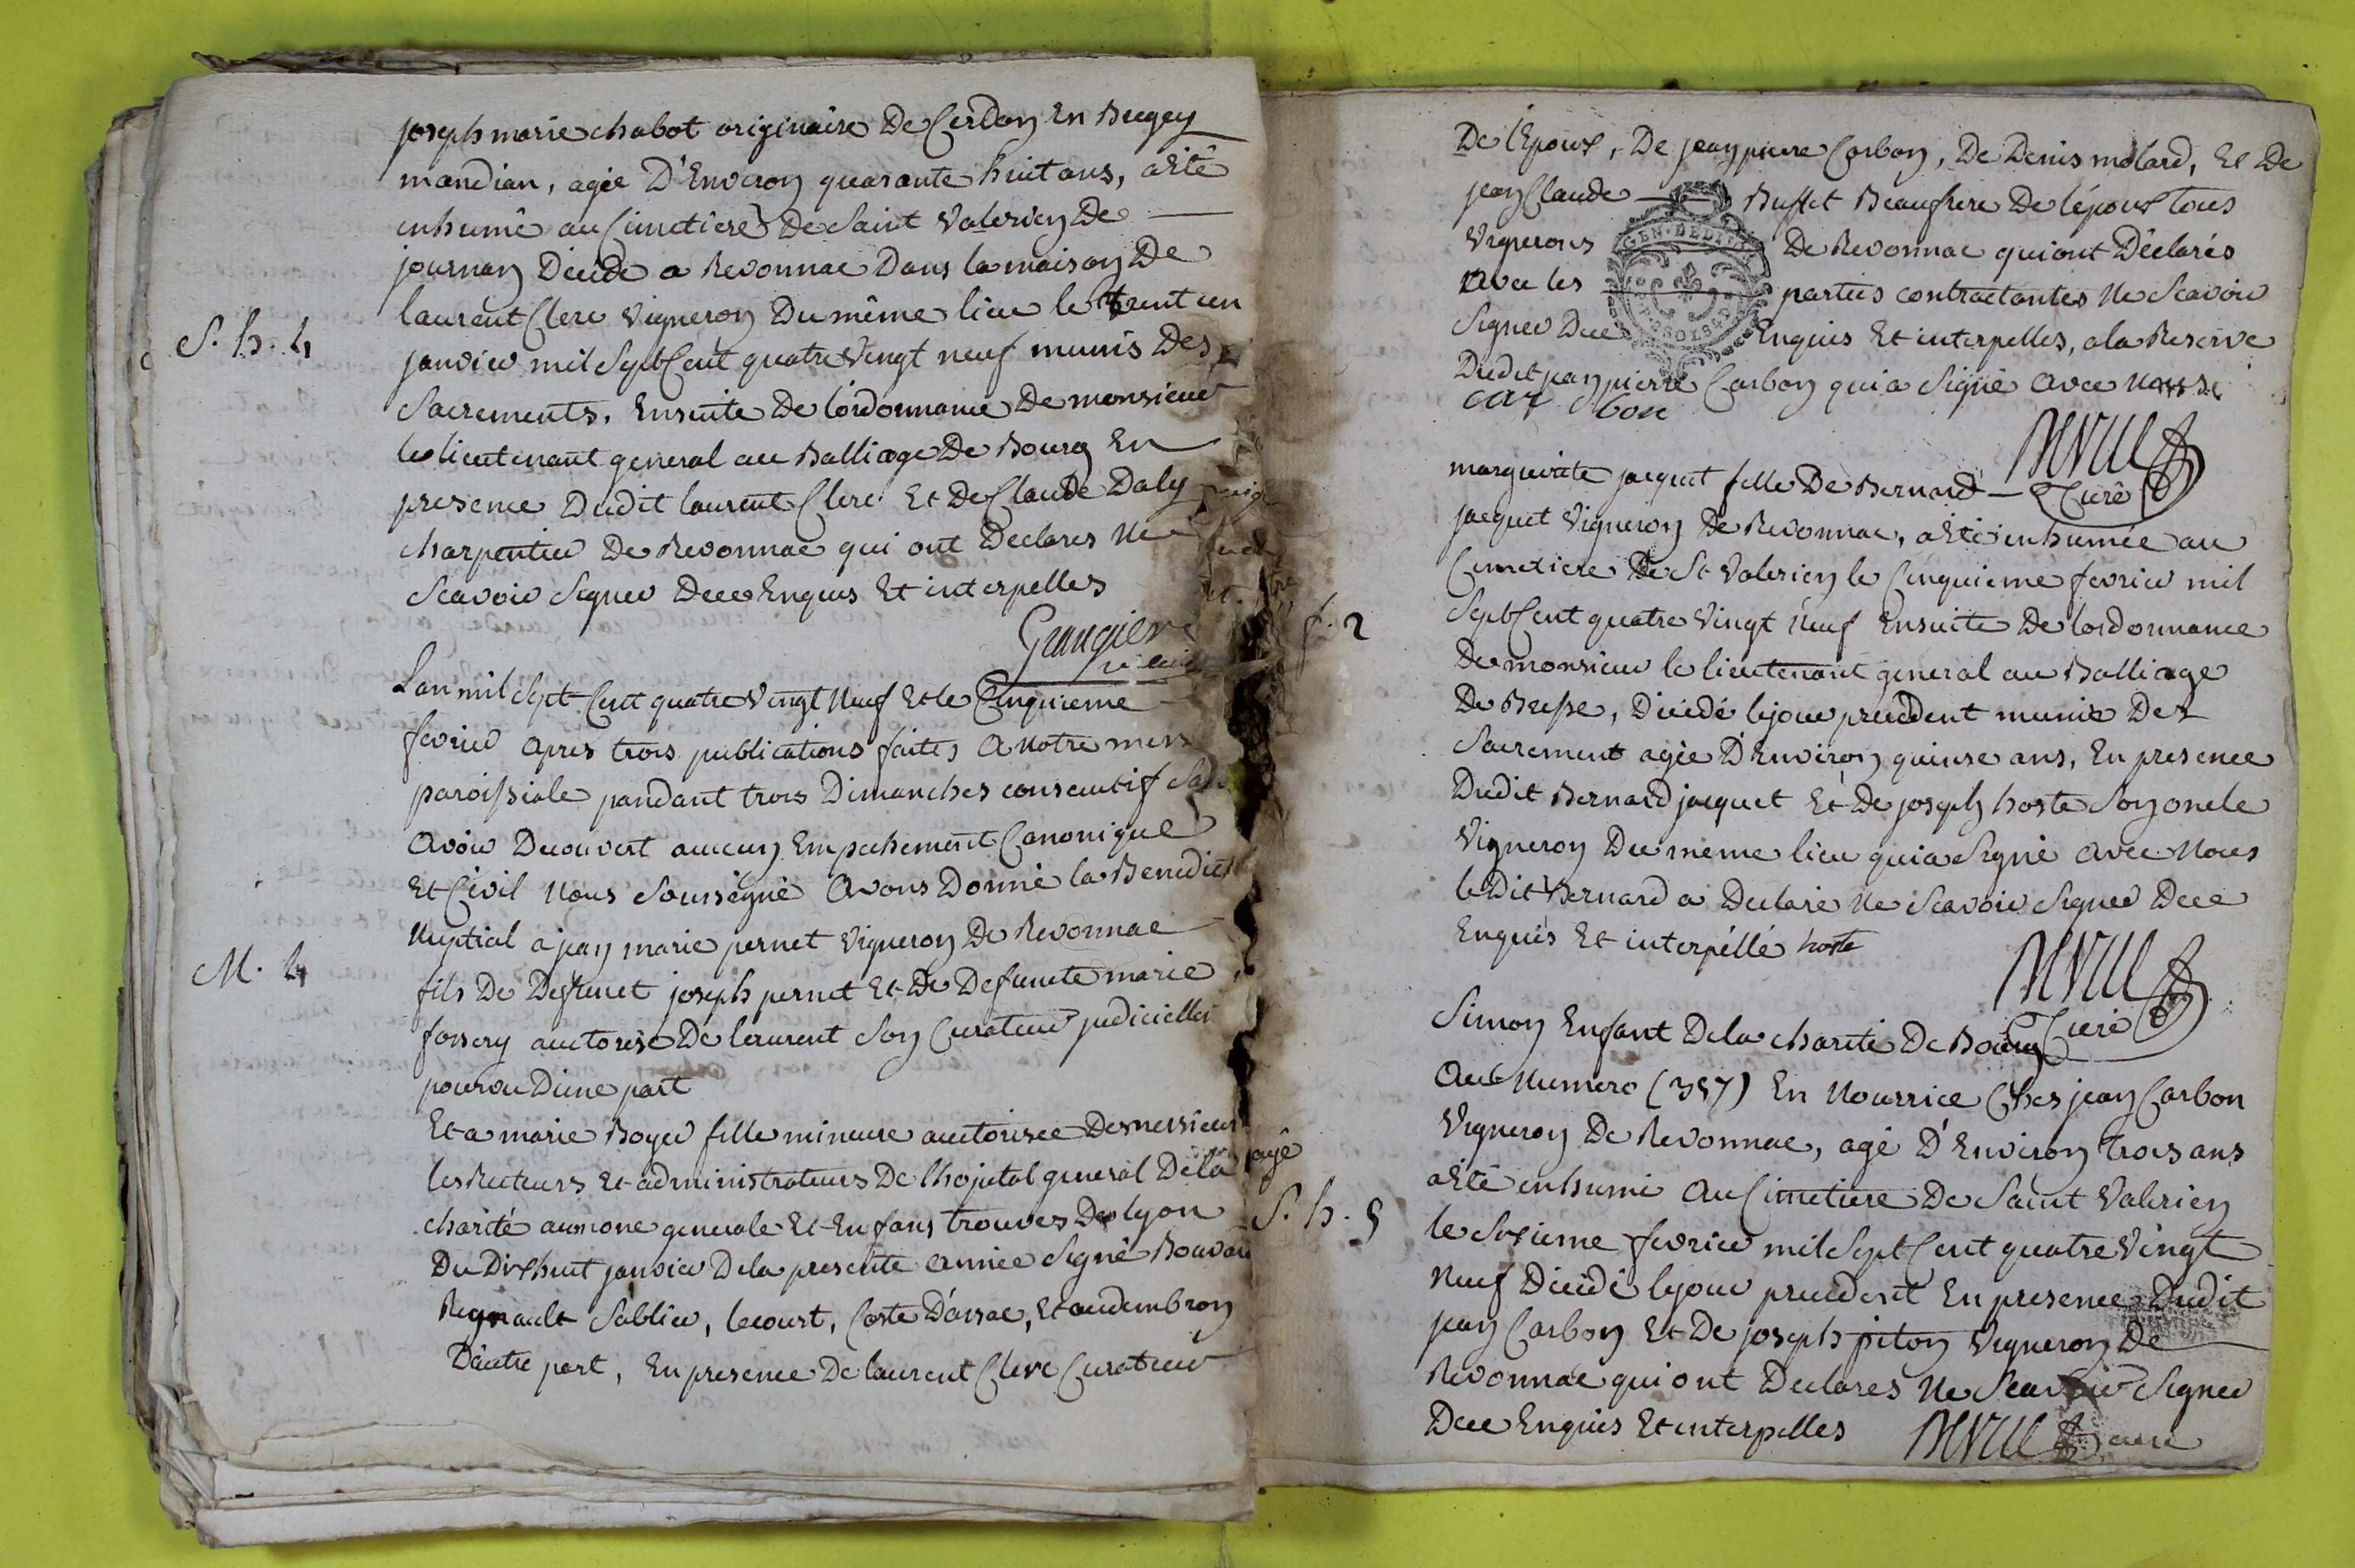 joseph marie chabot originaire De Cerdon En Bugey
mandian, agée D'Environ quarante huit ans, aêtê
inhumê au Cimetiere De Saint Valerien De
journan Décidé a Revonnac Dans la maison De
laurent Clerc Vigneron Du même lieu le trent un
S. h. 4
janvier mil Sept Cent quatre Vingt neuf munis Des
Sacrements. Ensuite De lordonnance De monsieur
le lieutenant general au Balliage De Bourg En
presence Dudit laurent Clerc Et De Claude Daly
charpentier De Revonnac qui ont Declares Ne
Scavoir Signer Dece Enquis Et interpelles
Grangier
Lan mil Sept Cent quatre Vingt Neuf Et le Cinquieme
fevrier apres trois publications faites a Notre mess
paroissiale pandant trois Dimanches consecutif San
avoir Decouvert aucun Empechement Canonique
Et Civil Nous Soussigné avons Donné la Benedict
Nuptial a jean marie pernet Vigneron De Revonnac
M. 4
fils De Deffunct joseph pernet Et De Defuncte marie
fossery auctorisé De laurent Son Curateur judicielle
pourvu Dune part
Et a marie Boyer fille mineure auctorisee De messieurs
les Recteurs Et administrateurs De lhopital general De la
charité aumone generale Et Enfans trouves De lyon
Du Dixhuit janvier De la presente année Signé Bouvar
Regnault Sablier, lecourt, Coste D'arsac, Et audembron
D'autre part, En presence De laurent Clerc Curateur
De lEpoux, De jean pierre Carbon, De Denis molard, Et De
jean Claude Buffet Beaufrere De lépoux tous
Vignerons De Revonnac qui ont Déclarés
avec les parties contractantes Ne Scavoir
Signer Dece Enquis Et interpelles, a la Reserve
Dudit jean pierre Carbon qui a Signé avec Nous
car bon
NEVILLE
Curé
marguerite jacquet fille De Bernard
jacquet Vigneron De Revonnac, aêté inhumée au
Cimetiere De St Valerien le Cinquieme fevrier mil
f. 2
Sept Cent quatre Vingt Neuf Ensuite De lordonnance
De monsieur le lieutenant general au Balliage
De Bresse, Décédé le jour precedent munie Des
Sacrement agée D'Environ quinse ans, En presence
Dudit Bernard jacquet Et De joseph hoste Son oncle
Vigneron Du meme lieu qui a Signé avec Nous
le Dit Bernard a Declaré Ne Scavoir Signer Dece
Enquis Et interpéllé hoste
NEVILLE
Curé
Simon Enfant De la charité De Bourg
au Numero (357) En Nourrice Ches jean Carbon
Vigneron De Revonnac, agé D'Environ trois ans
aêté inhumé au Cimetiere De Saint Valerien
S. h. 5
le Sixieme fevrier mil Sept Cent quatre Vingt
Neuf Décidé le jour precedent En presence Dudit
jean Carbon Et De joseph piton Vigneron De
Revonnac qui ont Declares Ne Scavoir Signer
Dece Enquis Et interpelles NEVILLE curé